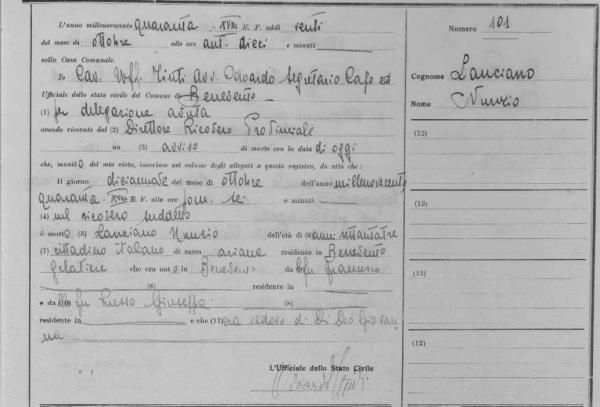 L'anno millenovecento quaranta - XVIII E. F. addì venti
del mese di ottobre alle ore ant. dieci e minuti
nella Casa Comunale.
Io Cav. Uff. Tinti Avv. Odoardo Segretario Capo ed
Ufficiale dello stato civile del Comune di Benevento
(1) per delegazione avuta
avendo ricevuto dal (2) Direttore Ricovero Provinciale
un (3) avviso di morte con la data di oggi
che, munito del mio visto, inserisco nel volume degli allegati a questo registro, do atto che:
Il giorno diciannove del mese di ottobre dell'anno millenovecento
quaranta - XVIII E. F. alle ore pom. sei e minuti
(4) nel ricovero suddetto
è morto (5) Lanciano Nunzio dell'età di (6) anni settantatre
(7) cittadino italiano di razza ariana residente in Benevento
gelatiere che era nato in Benevento da fu Francesco
(8) residente in
e da (10) fu Russo Giuseppa (8)
residente in e che (11) era vedovo di Di Dio Giovan
na
L'Ufficiale dello Stato Civile
Odoardo Tinti
Numero 101
Cognome Lanciano
Nome Nunzio
(12)
(12)
(12)
(12)